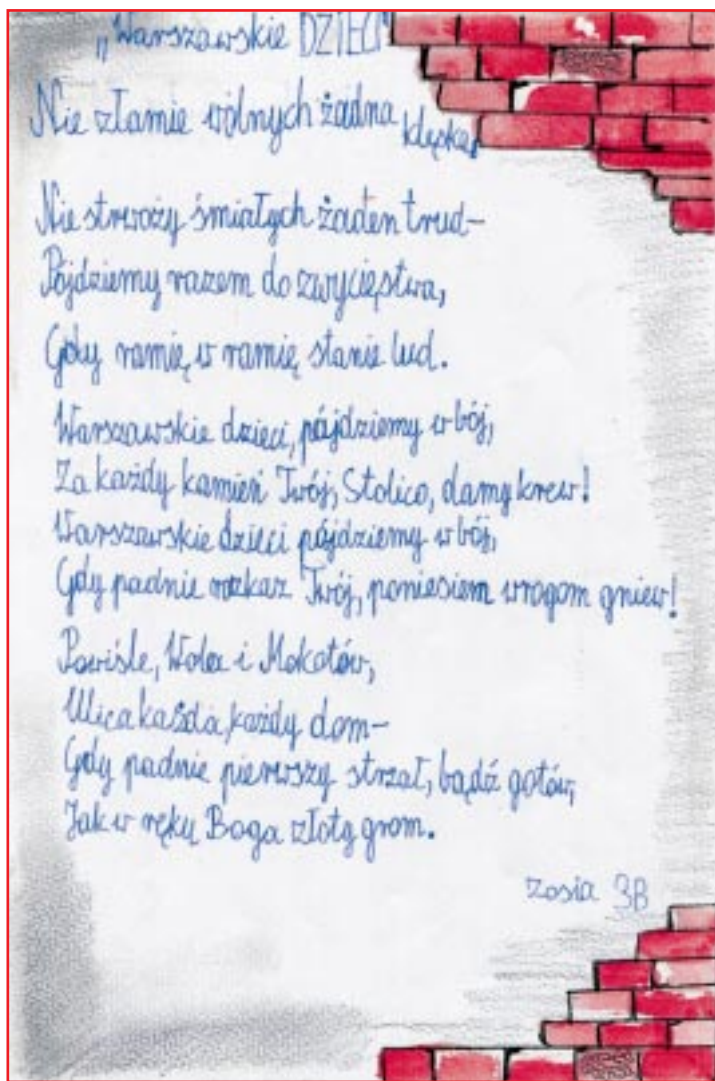 „Warszawskie DZIECI"
Nie złamie wolnych żadna klęska,
Nie strwoży śmiałych żaden trud-
Pójdziemy razem do zwycięstwa,
Gdy ramię w ramię stanie lud.
Warszawskie dzieci, pójdziemy w bój,
Za każdy kamień Twój, Stolico, damy krew!
Warszawskie dzieci pójdziemy w bój,
Gdy padnie rozkaz Twój, poniesiem wrogom gniew!
Powiśle, Wola i Mokotów,
Ulica każda, każdy dom-
Gdy padnie pierwszy strzał, bądź gotów,
Jak w ręku Boga złoty grom.
Zosia 3B